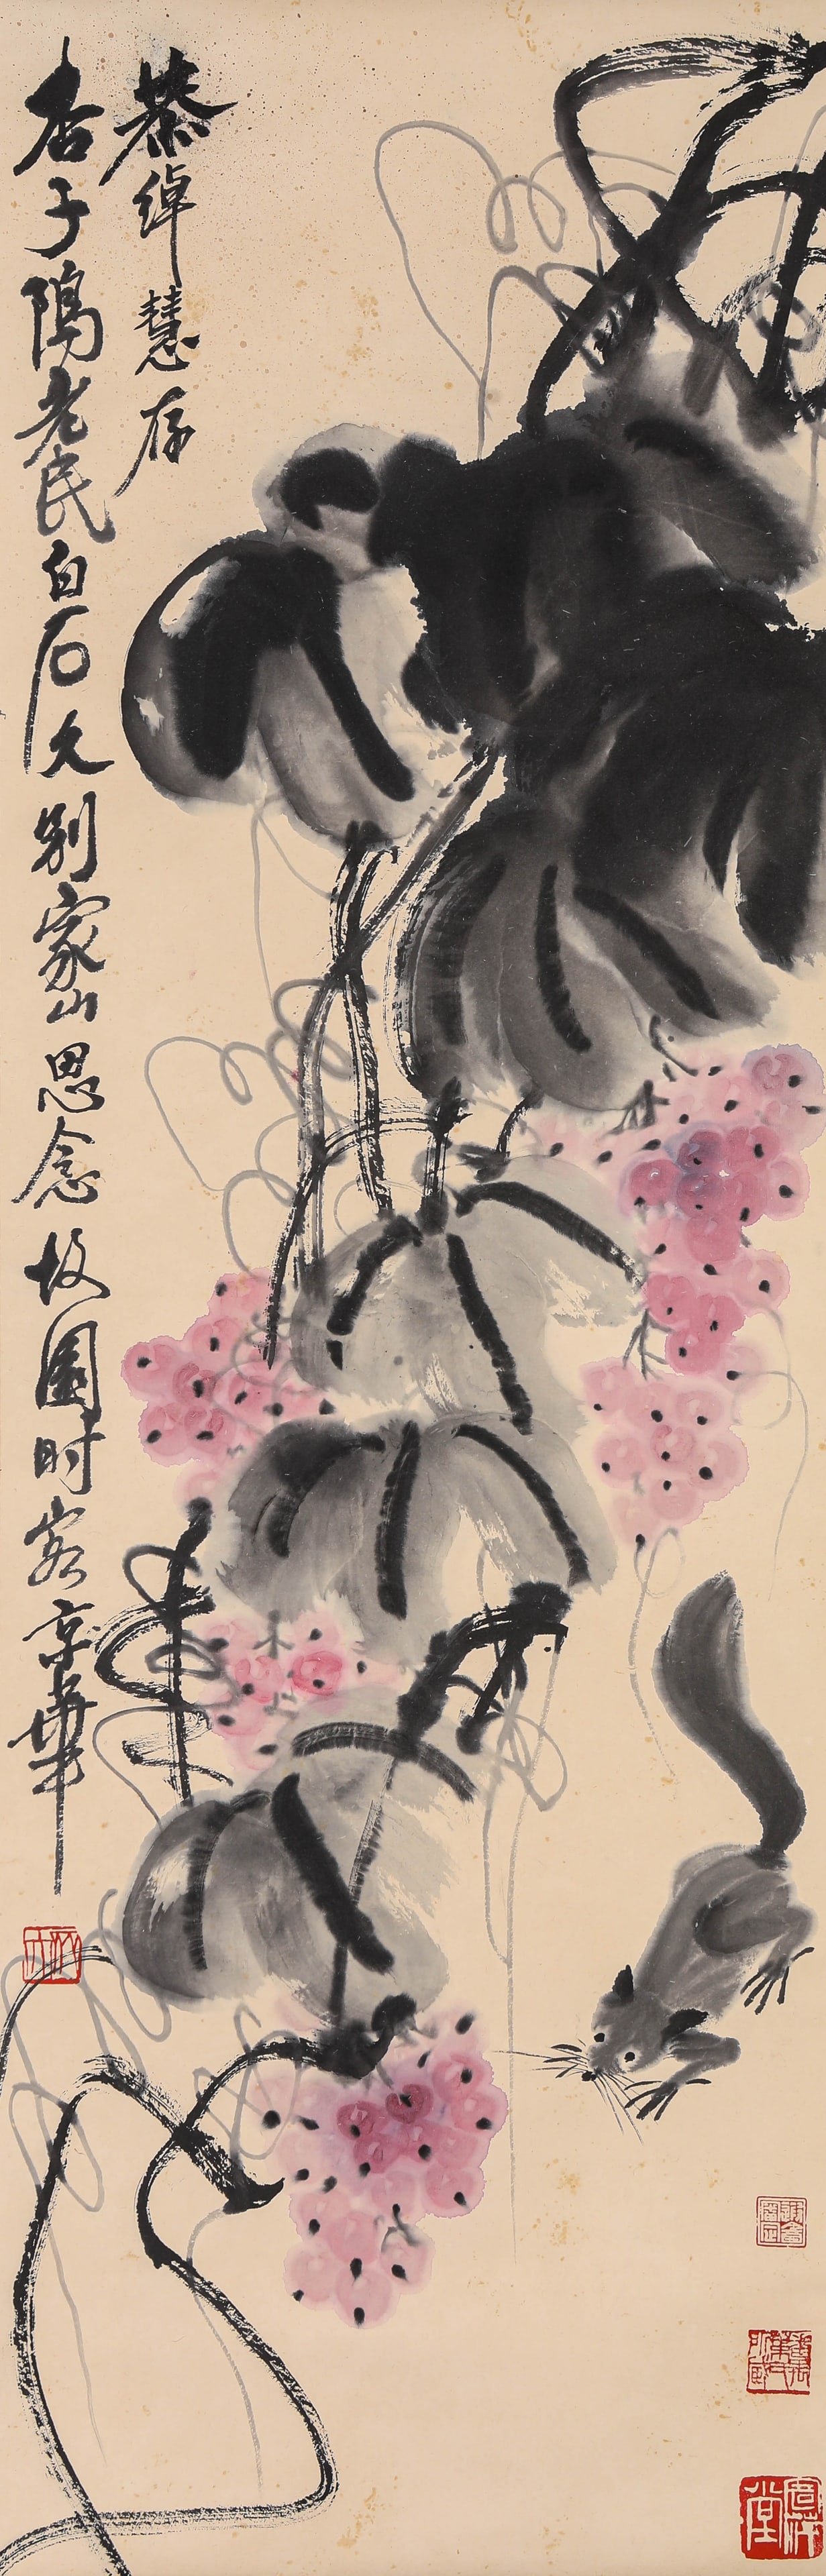 恭綽慧存
杏子隖老民白石久別家山思念故園时客京華